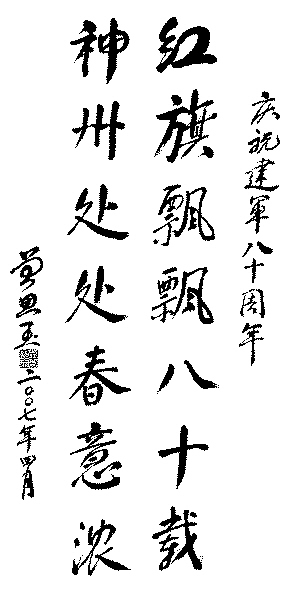 庆祝建軍八十周年
红旗飄飄八十载
神州处处春意浓
曾思玉
二〇〇七年四月